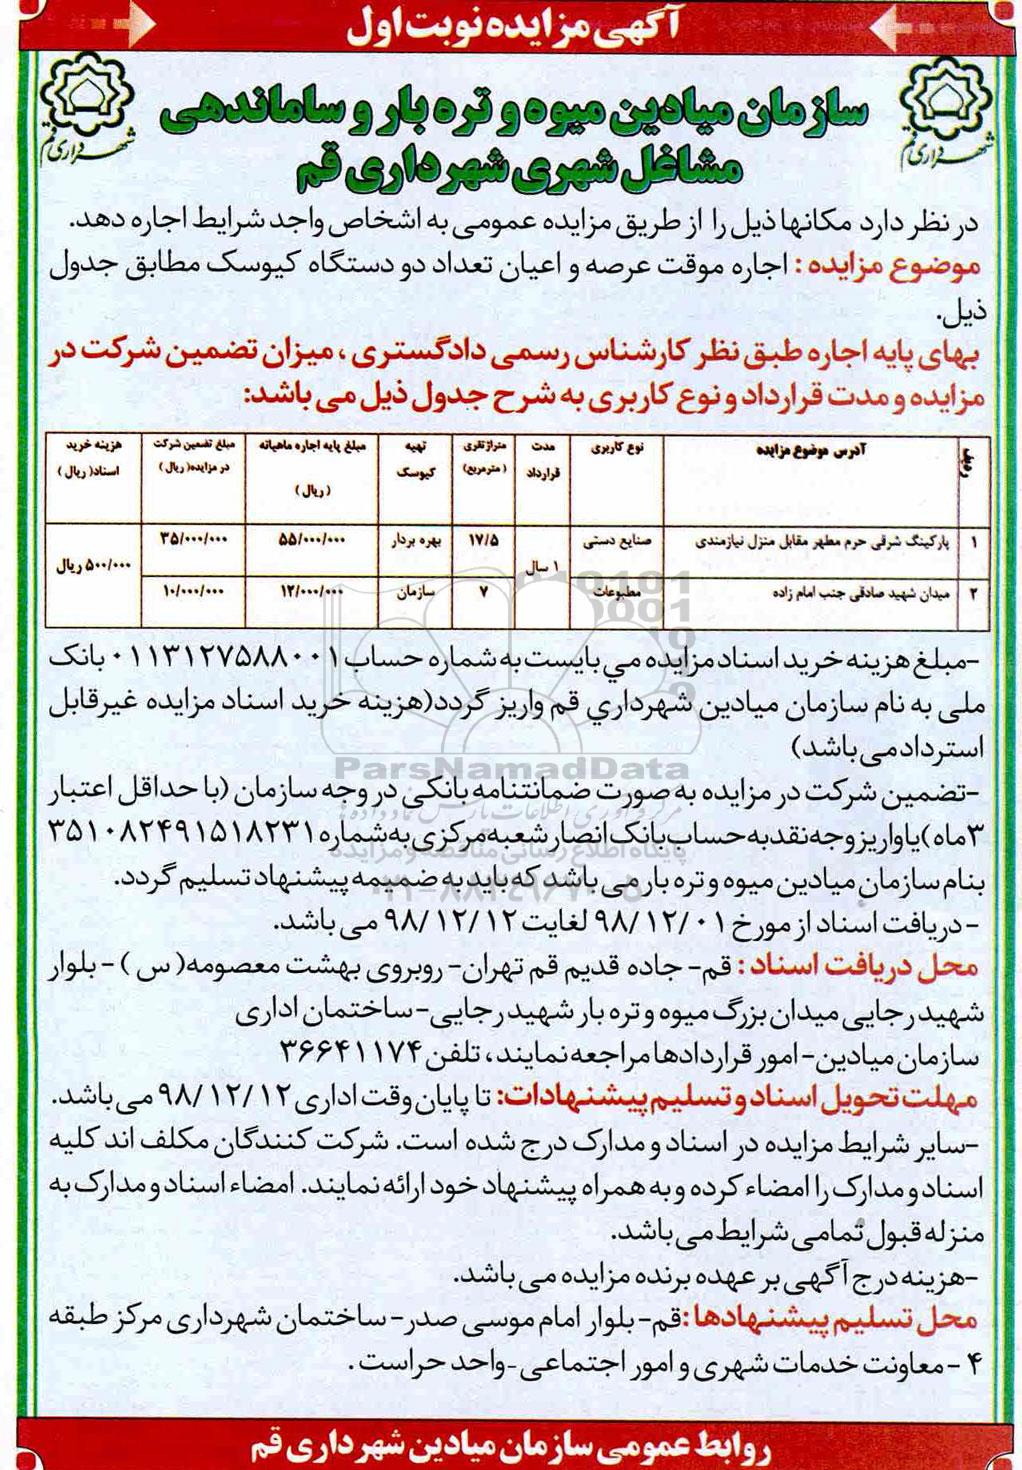 آگهی مزایده نوبت اول
شهرداری قم
شهرداری قم
سازمان میادین میوه و تره بار و ساماندهی
مشاغل شهری شهرداری قم
در نظر دارد مکانها ذیل را از طریق مزایده عمومی به اشخاص واجد شرایط اجاره دهد.
موضوع مزایده : اجاره موقت عرصه و اعیان تعداد دو دستگاه کیوسک مطابق جدول
ذیل.
بهای پایه اجاره طبق نظر کارشناس رسمی دادگستری ، میزان تضمین شرکت در
مزایده و مدت قرارداد و نوع کاربری به شرح جدول ذیل می باشد:
ردیف | آدرس موضوع مزایده | نوع کاربری | مدت قرارداد | متراژ تقری (مترمربع) | تهیه کیوسک | مبلغ پایه اجاره ماهیانه (ریال) | مبلغ تضمین شرکت در مزایده( ریال ) | هزینه خرید اسناد( ریال )
۱ | پارکینگ شرقی حرم مطهر مقابل منزل نیازمندی | صنایع دستی | ۱ سال | ۱۷/۵ | بهره بردار | ۵۵/۰۰۰/۰۰۰ | ۳۵/۰۰۰/۰۰۰ | ۵۰۰/۰۰۰ ریال
۲ | میدان شهید صادقی جنب امام زاده | مطبوعات | ۷ | سازمان | ۱۲/۰۰۰/۰۰۰ | ۱۰/۰۰۰/۰۰۰
-مبلغ هزینه خرید اسناد مزایده می بایست به شماره حساب ۰۱۱۳۱۲۷۵۸۸۰۰۱ بانک
ملی به نام سازمان میادین شهرداري قم واریز گردد(هزینه خرید اسناد مزایده غیرقابل
استرداد می باشد)
ParsNamadData
-تضمین شرکت در مزایده به صورت ضمانتنامه بانکی در وجه سازمان (با حداقل اعتبار
۳ماه)یا واریز وجه نقد به حساب بانک انصار شعبه مرکزی به شماره ۳۵۱۰۸۲۴۹۱۵۱۸۲۳۱
پایگاه اطلاع رسانی مناقصه و مزایده
بنام سازمان میادین میوه و تره بار می باشد که باید به ضمیمه پیشنهاد تسلیم گردد.
-دریافت اسناد از مورخ ۹۸/۱۲/۰۱ لغایت ۹۸/۱۲/۱۲ می باشد.
محل دریافت اسناد : قم- جاده قدیم قم تهران- روبروی بهشت معصومه( س ) - بلوار
شهید رجایی میدان بزرگ میوه و تره بار شهید رجایی- ساختمان اداری
سازمان میادین- امور قراردادها مراجعه نمایند ، تلفن ۳۶۶۴۱۱۷۴
مهلت تحویل اسناد و تسلیم پیشنهادات: تا پایان وقت اداری ۹۸/۱۲/۱۲ می باشد.
-سایر شرایط مزایده در اسناد و مدارک درج شده است. شرکت کنندگان مکلف اند کلیه
اسناد و مدارک را امضاء کرده و به همراه پیشنهاد خود ارائه نمایند. امضاء اسناد و مدارک به
منزله قبول تمامی شرایط می باشد.
-هزینه درج آگهی بر عهده برنده مزایده می باشد.
محل تسلیم پیشنهادها :قم- بلوار امام موسی صدر- ساختمان شهرداری مرکز طبقه
۴ - معاونت خدمات شهری و امور اجتماعی -واحد حراست .
روابط عمومی سازمان میادین شهرداری قم